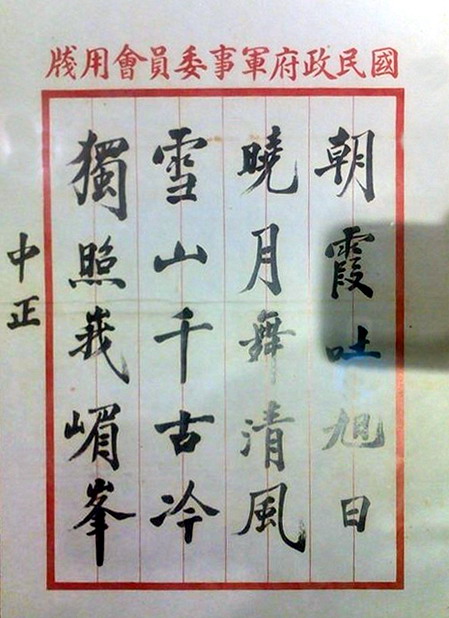 國民政府軍事委員會用牋
朝霞吐旭日
曉月舞清風
雪山千古冷
獨照峩嵋峯
中正